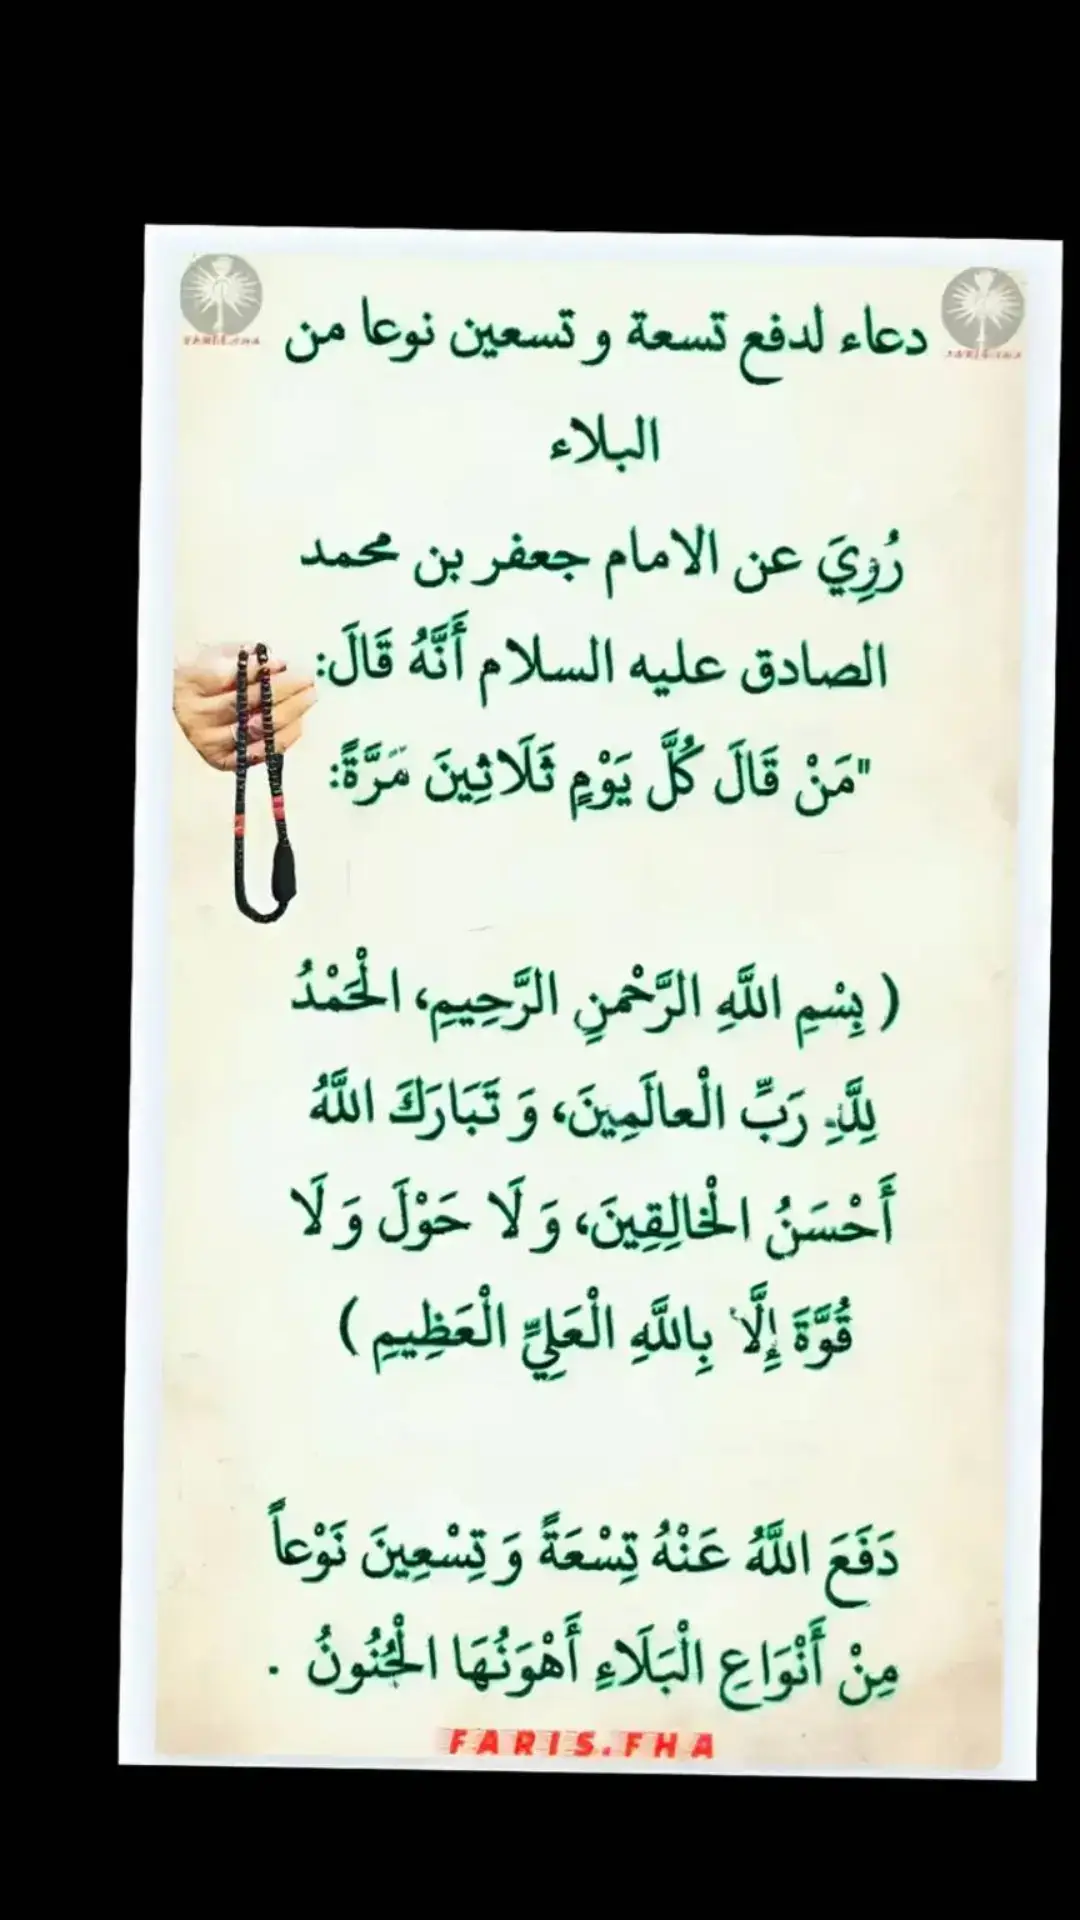 دعاء لدفع تسعة و تسعين نوعا من
البلاء
رُوِيَ عن الامام جعفر بن محمد
الصادق عليه السلام أَنَّهُ قَالَ:
"مَنْ قَالَ كُلَّ يَوْمٍ ثَلَاثِينَ مَرَّةً:
( بِسْمِ اللَّهِ الرَّحْمنِ الرَّحِيمِ، الْحَمْدُ
لِلَّهِ رَبِّ الْعالَمِينَ، وَ تَبَارَكَ اللَّهُ
أَحْسَنُ الْخالِقِينَ، وَ لَا حَوْلَ وَ لَا
قُوَّةَ إِلَّا بِاللَّهِ الْعَلِيِّ الْعَظِيمِ )
دَفَعَ اللَّهُ عَنْهُ تِسْعَةً وَ تِسْعِينَ نَوْعاً
مِنْ أَنْوَاعِ الْبَلَاءِ أَهْوَنُهَا الْجُنُونُ .
FARIS.FHA